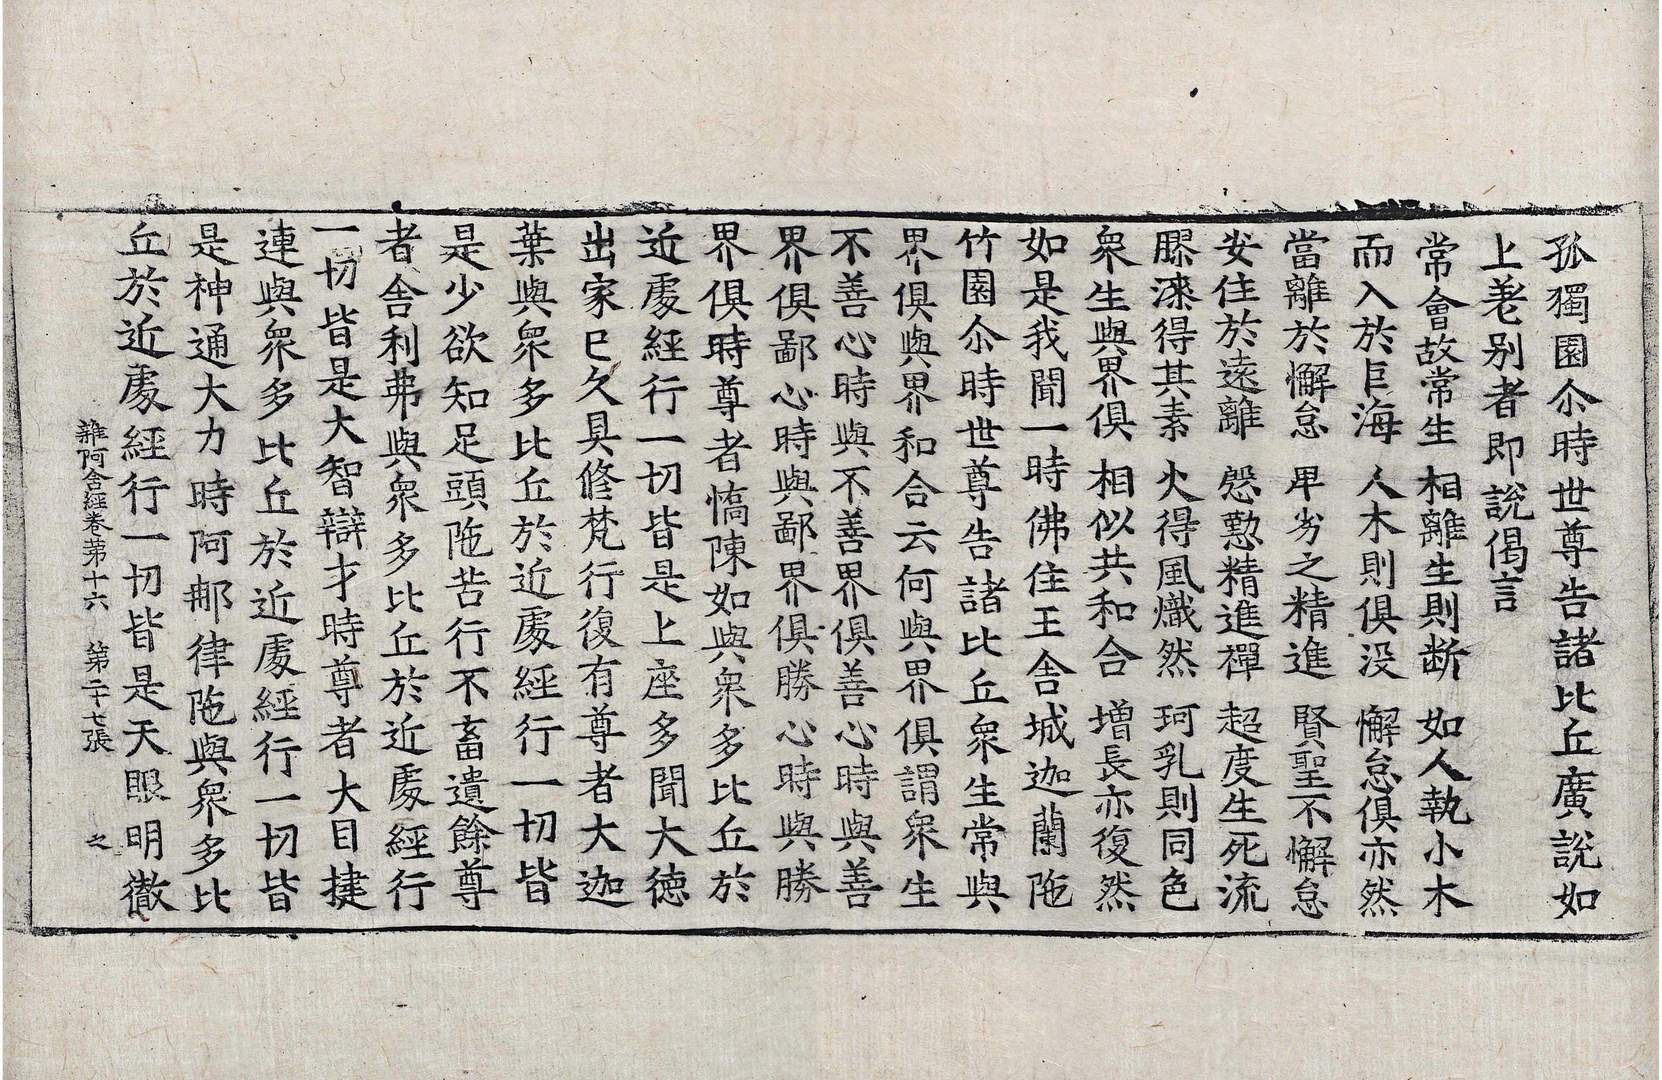 孤獨園尒時世尊告諸比丘廣說如
上差别者即說偈言
常會故常生　相離生則断　如人執小木
而入於巨海　人木則俱没　懈怠俱亦然
當離於懈怠　卑劣之精進　賢聖不懈怠
安住於遠離　慇懃精進禪　超度生死流
膠漆得其素　火得風熾然　珂乳則同色
衆生與界俱　相似共和合　增長亦復然
如是我聞一時佛住王舍城迦蘭陁
竹園尒時世尊告諸比丘衆生常與
界俱與界和合云何與界俱謂衆生
不善心時與不善界俱善心時與善
界俱鄙心時與鄙界俱勝心時與勝
界俱時尊者憍陳如與衆多比丘於
近處經行一切皆是上座多聞大徳
出家已久具修梵行復有尊者大迦
葉與衆多比丘於近處經行一切皆
是少欲知足頭陁苦行不畜遺餘尊
者舍利弗與衆多比丘於近處經行
一切皆是大智辯才時尊者大目揵
連與衆多比丘於近處經行一切皆
是神通大力時阿那律陁與衆多比
丘於近處經行一切皆是天眼明徹
雜阿含經卷第十六　第二十七張　之